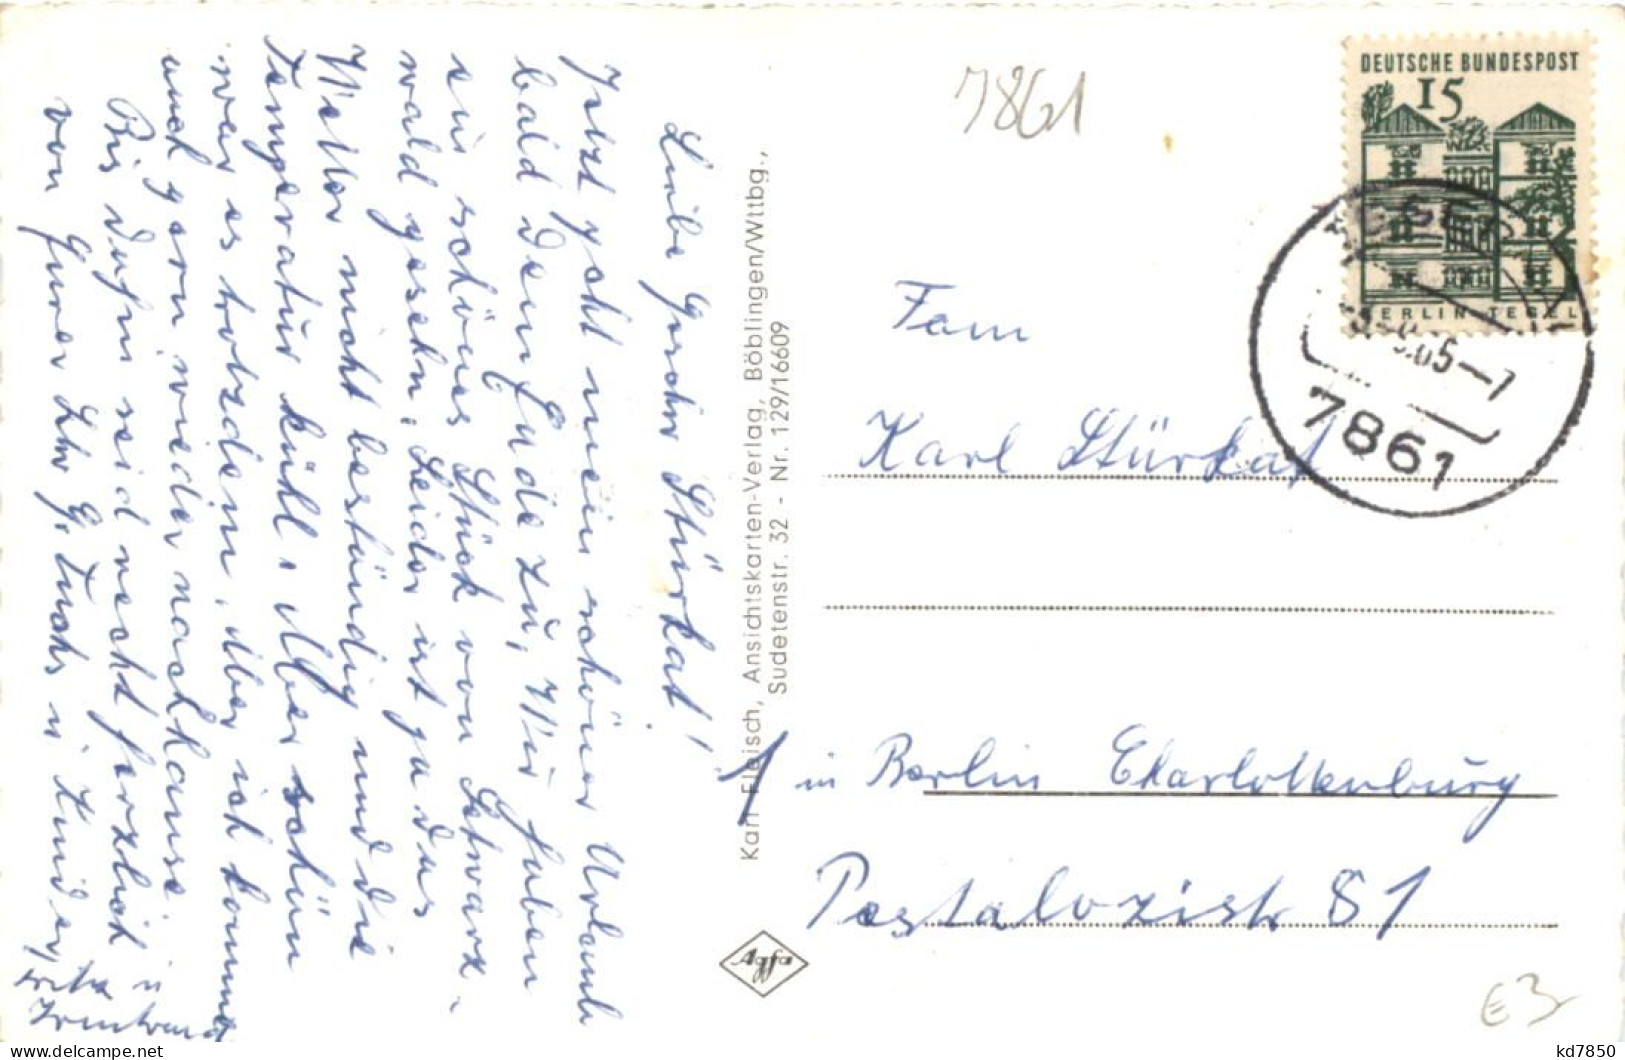 Liebe Geschw Stürkat!
Jetzt geht mein schöner Urlaub
bald dem Ende zu, Wir haben
ein schönes Stück von Schwarz-
wald gesehn. Leider ist ja das
Wetter nicht beständig und die
Temperatur kühl. Aber schön
war es trotzdem. Aber ich komme
auch gern wieder nach Hause.
Bis dahin seid recht herzlich
von Eurer Schw G. u Kinder
u
Irmtraud
Karl Fleisch, Ansichtskarten-Verlag, Böblingen/Wttbg.,
Sudetenstr. 32 - Nr. 129/16609
Agfa
7861
DEUTSCHE BUNDESPOST
15
BERLIN-TEGEL
65-7
7861
Fam
Karl Stürkat
1 in Berlin Charlottenburg
Pestalozzistr 81
€3
delcampe.net
kd7850